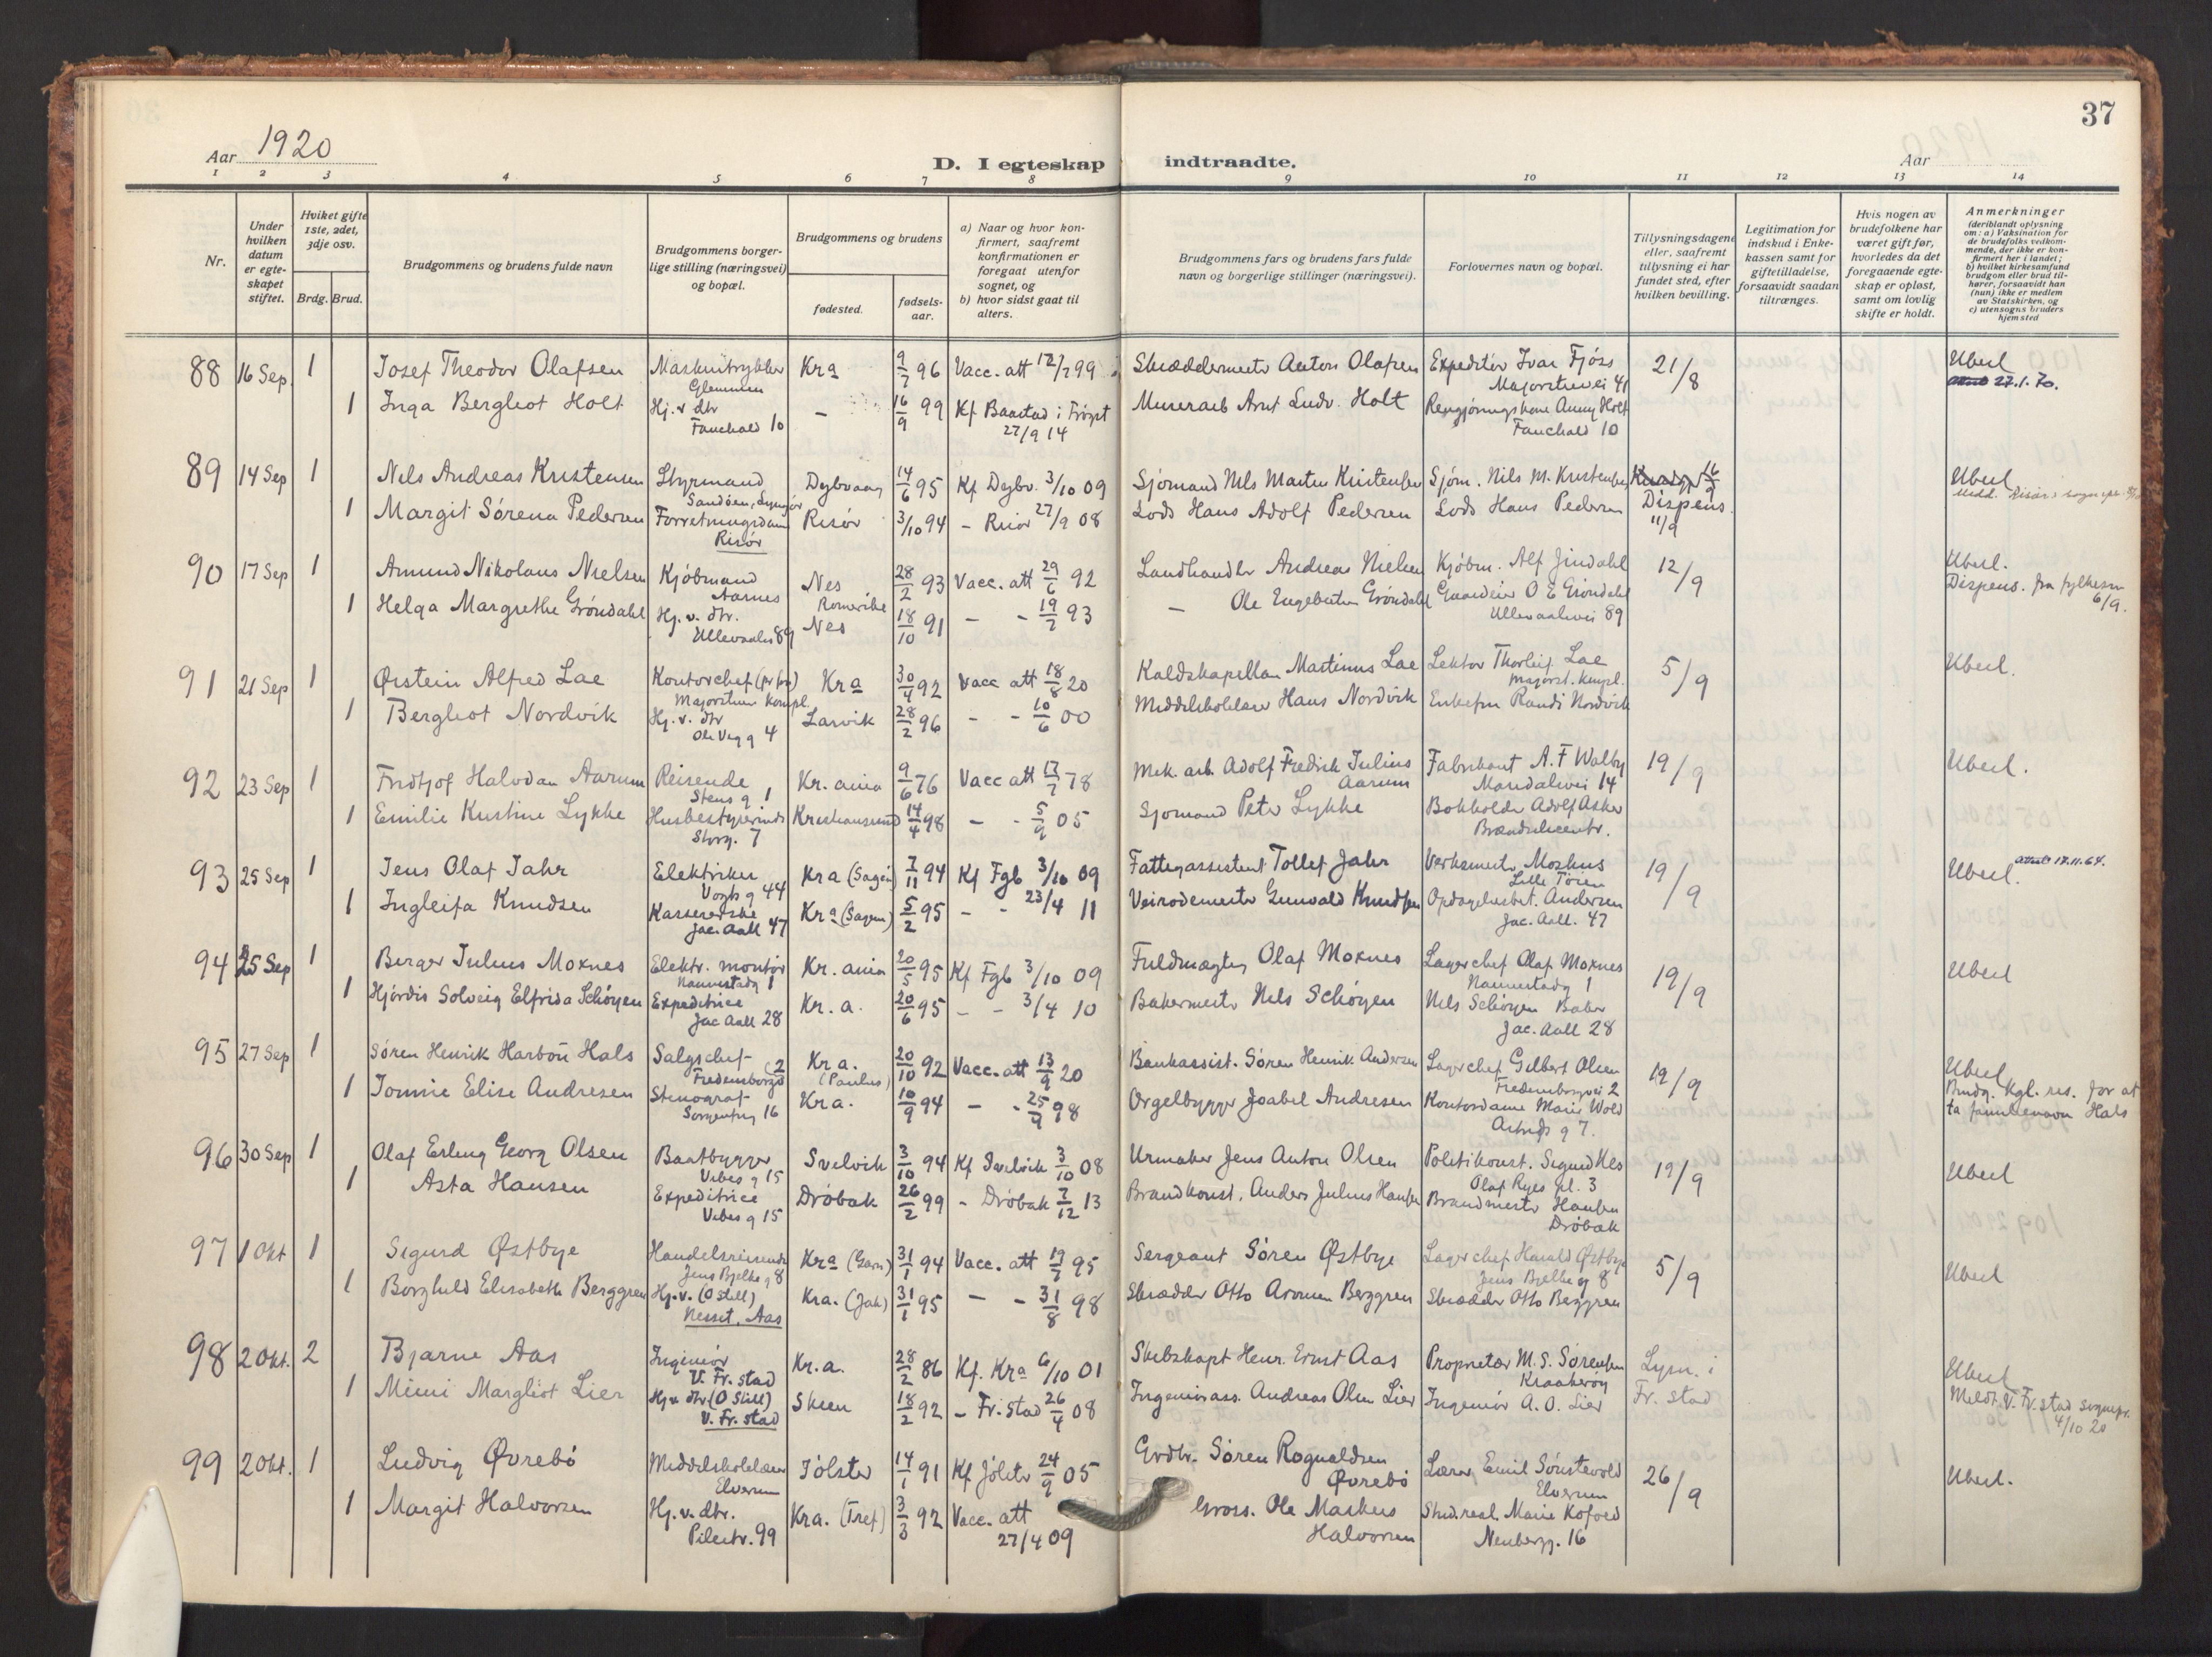 37
Aar 1920
D. I egteskap indtraadte.
Aar
1 2 3 4 5 6 7 8 9 10 11 12 13 14
Nr.
Under hvilken datum er egteskapet stiftet.
Hvilket gifte 1ste, 2det, 3dje osv.
Brdg. Brud.
Brudgommens og brudens fulde navn
Brudgommens borgerlige stilling (næringsvei) og bopæl.
Brudgommens og brudens
fødested.
fødselsaar.
a) Naar og hvor konfirmert, saafremt konfirmationen er foregaat utenfor sognet, og
b) hvor sidst gaat til alters.
Brudgommens fars og brudens fars fulde navn og borgerlige stillinger (næringsvei).
Forlovernes navn og bopæl.
Tillysningsdagene eller, saafremt tillysning ei har fundet sted, efter hvilken bevilling.
Legitimation for indskud i Enkekassen samt for giftetilladelse, forsaavidt saadan tiltrænges.
Hvis nogen av brudefolkene har været gift før, hvorledes da det foregaaende egteskap er opløst, samt om lovlig skifte er holdt.
Anmerkninger
(deriblandt oplysning om: a) Vaksination for de brudefolks vedkommende, der ikke er konfirmert her i landet; b) hvilket kirkesamfund brudgom eller brud tilhører, forsaavidt han (hun) ikke er medlem av Statskirken, og c) utensogns bruders hjemsted
88 16 Sep. 1 Josef Theodor Olafsen Maskintrykker Glemmen Kra 9/7 96 Vacc. att 12/7 99 Skræddermester Anton Olafsen Expeditør Ivar Fjøss Majorstuevei 41 21/8 Ubesl 27.1.70.
1 Inga Bergliot Holt Hj. v. dtr Fauchald 10 - 16/9 99 Kf Baastad i Trøgst 27/9 14 Murerarb Arnt Ludv. Holt Rengjøringskone Anny Holt Fauchald 10
89 14 Sep 1 Nils Andreas Kristensen Styrmand Sandøen, Lyngør Dybvaag 14/6 95 Kf Dybv. 3/10 09 Sjømand Nils Martin Kristensen Sjøm. Nils M. Kristensen Dispens. 11/9 Ubesl
1 Margit Sørena Pedersen Forretningsdame Risør Risør 3/10 94 - Risør 27/9 08 Lods Hans Adolf Pedersen Lods Hans Pedersen
90 17 Sep 1 Amund Nikolaus Nielsen Kjøbmand Aarnes Nes Romerike 28/2 93 Vacc. att 29/6 92 Landhandler Andreas Nielsen Kjøbm. Alf Jindahl 12/9 Ubesl. Dispens. fra fylkesm 6/9.
1 Helga Margrethe Grøndahl Hj. v. dtr. Ullevaalsv 89 Nes 18/10 91 - - 19/7 93 - Ole Engebretsen Grøndahl Gaardeier O E Grøndahl Ullevaalsvei 89
91 21 Sep 1 Øistein Alfred Lae Kontorchef Majorstuen kompl. Kra 30/4 92 Vacc att 18/8 20 Kaldskapellan Martinus Lae Lektor Thorleif Lae Majorst. kompl. 5/9 Ubesl.
1 Bergliot Nordvik Hj. v. dtr Ole Vig g 4 Larvik 28/2 96 - - 10/6 00 Middelskolelærer Hans Nordvik Enkefru Randi Nordvik
92 23 Sep 1 Fridtjof Halvdan Aarum Reisende Stens g 1 Kr.ania 9/6 76 Vacc att 17/7 78 Mek. arb. Adolf Fredrik Julius Aarum Fabrikant A. F Walby Maridalsvei 14 19/9 Ubesl.
1 Emilie Kristine Lykke Husbestyrerinde Storg. 7 Kristiansund 14/4 98 - - 5/9 05 Sjømand Peter Lykke Bokholder Adolf Asker
93 25 Sep 1 Jens Olaf Jahr Elektriker Vogts g 44 Kra (Sagen) 7/11 94 Kf Fgb 3/10 09 Fattigassistent Tollef Jahr Verksmester Moxnes Lille Tøien 19/9 Ubesl. 17.11.64.
1 Ingleifa Knudsen Kassererske Jac. Aall 47 Kra (Sagen) 5/2 95 - - 23/4 11 Veirodemester Gunvald Knudsen Opdagelsesbet. Andersen Jac. Aall. 47
94 25 Sep 1 Berger Julius Moxnes Elektr. montør Nannestadg 1 Kr.ania 20/5 95 Kf Fgb 3/10 09 Fuldmægtig Olaf Moxnes Lagerchef Olaf Moxnes Nannestadg 1 19/9 Ubesl
1 Hjørdis Solveig Elfrida Schøyen Expeditrice Jac Aall 28 Kr. a. 20/6 95 - - 3/4 10 Bakermester Nils Schøyen Nils Schøyen Baker Jac. Aall 28
95 27 Sep 1 Søren Henrik Harboe Hals Salgschef Fredensborgv 2 Kr a. (Paulus) 20/10 92 Vacc. att 13/9 20 Bankassist. Søren Henrik Andersen Lagerchef Gilbert Olsen Fredensborgvei 2 19/9 Ubesl Brudg. Kgl. res. for at ta familienavn Hals
1 Jonnie Elise Andresen Stenograf Sorgenfrig 16 Kra. 10/9 94 - - 25/9 98 Orgelbygger Joabel Andresen Kontordame Marie Wold Astrids g 7.
96 30 Sep 1 Olaf Erling Georg Olsen Baatbygger Vibes g 15 Svelvik 3/10 94 Kf Svelvik 3/10 08 Urmaker Jens Anton Olsen Politikonst. Sigurd Nes Olaf Ryes pl. 3 19/9 Ubesl
1 Asta Hansen Expeditrice Vibes g 15 Drøbak 26/2 99 - Drøbak 7/12 13 Brandkonst. Anders Julius Hansen Brandmester Hansen Drøbak
97 1 Okt 1 Sigurd Østbye Handelsreisende Jens Bjelkes g 8 Kra (Gam) 31/1 94 Vacc. att 19/7 95 Sergeant Søren Østbye Lagerchef Harald Østbye Jens Bjelkes g 8 5/9 Ubesl
1 Borghild Elisabeth Berggren Hj. v. (O still) Nesset, Aas Kra. (Jak) 31/1 95 - - 31/8 98 Skrædder Otto Aronsen Berggren Skrædder Otto Berggren
98 2 Okt. 2 Bjarne Aas Ingeniør V. Fr. stad Kr. a. 28/2 86 Kf. Kra 6/10 01 Skibskapt Henr. Ernst Aas Proprietær M. S. Sørensen Kraakerøy Lysn. i Fr. stad Ubesl Meldt V. Fr. stad sognepr. 4/10 20
1 Mimi Margliot Lier Hj v dtr (O Still) V. Fr. stad Skien 18/2 92 - Fr. stad 26/4 08 Ingeniørass. Andreas Olsen Lier Ingeniør A. O. Lier
99 2 Okt. 1 Ludvig Øvrebø Middelskolelærer Elverum Jølster 14/1 91 Kf Jølster 24/9 05 Grdbr. Søren Rognaldsen Øvrebø Lærer Emil Sønstevold Elverum 26/9 Ubesl.
1 Margit Halvorsen Hj. v. dtr. Pilestr. 99 Kra. (Tref) 3/3 92 Vacc. att 27/4 09 Gross. Ole Markus Halvorsen Stud. real. Marie Kofoed Neubergg. 16